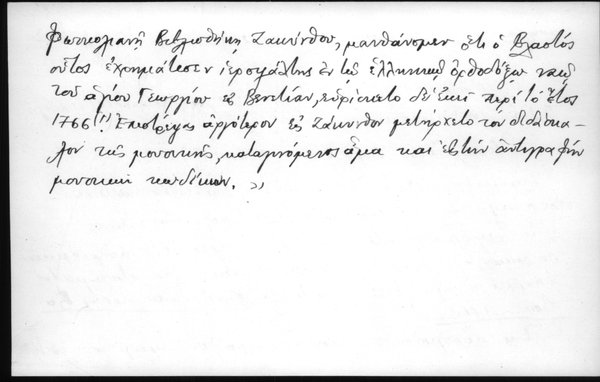 Φωσκολιανῇ Βιβλιοθήκῃ Ζακύνθου, μανθάνομεν ὅτι ὁ Βλαστός
οὗτος ἐχρημάτισεν ἱεροψάλτης ἐν τῷ ἑλληνικῷ ὀρθοδόξῳ ναῷ
τοῦ ἁγίου Γεωργίου εἰς Βενετίαν, εὑρίσκετο δὲ ἐκεῖ περὶ τὸ ἔτος
1766.(1) Ἐπιστρέψας ἀργότερον εἰς Ζάκυνθον μετήρχετο τὸν διδάσκα-
λον τῆς μουσικῆς, καταγινόμενος ἅμα καὶ εἰς τὴν ἀντιγραφὴν
μουσικῶν κωδίκων. »